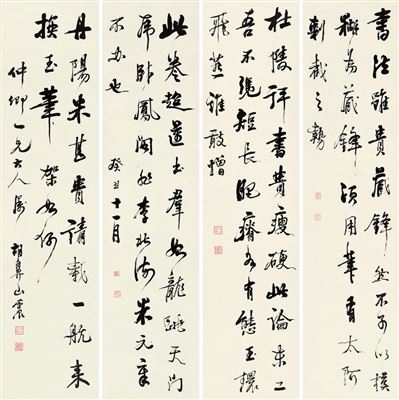 書法雖貴藏鋒然不可以模
糊為藏鋒須用筆有太阿
剸截之勢
杜陵評書貴瘦硬此論未公
吾不憑短長肥瘠各有態玉環
飛燕誰敢憎
此卷超邁出群如龍跳天門
虎臥鳳閣李北海米元章
不也 癸丑十一月
丹陽米甚貴請載一航米
換玉筆架如何
仲卿一兄大人屬 胡鼻山震